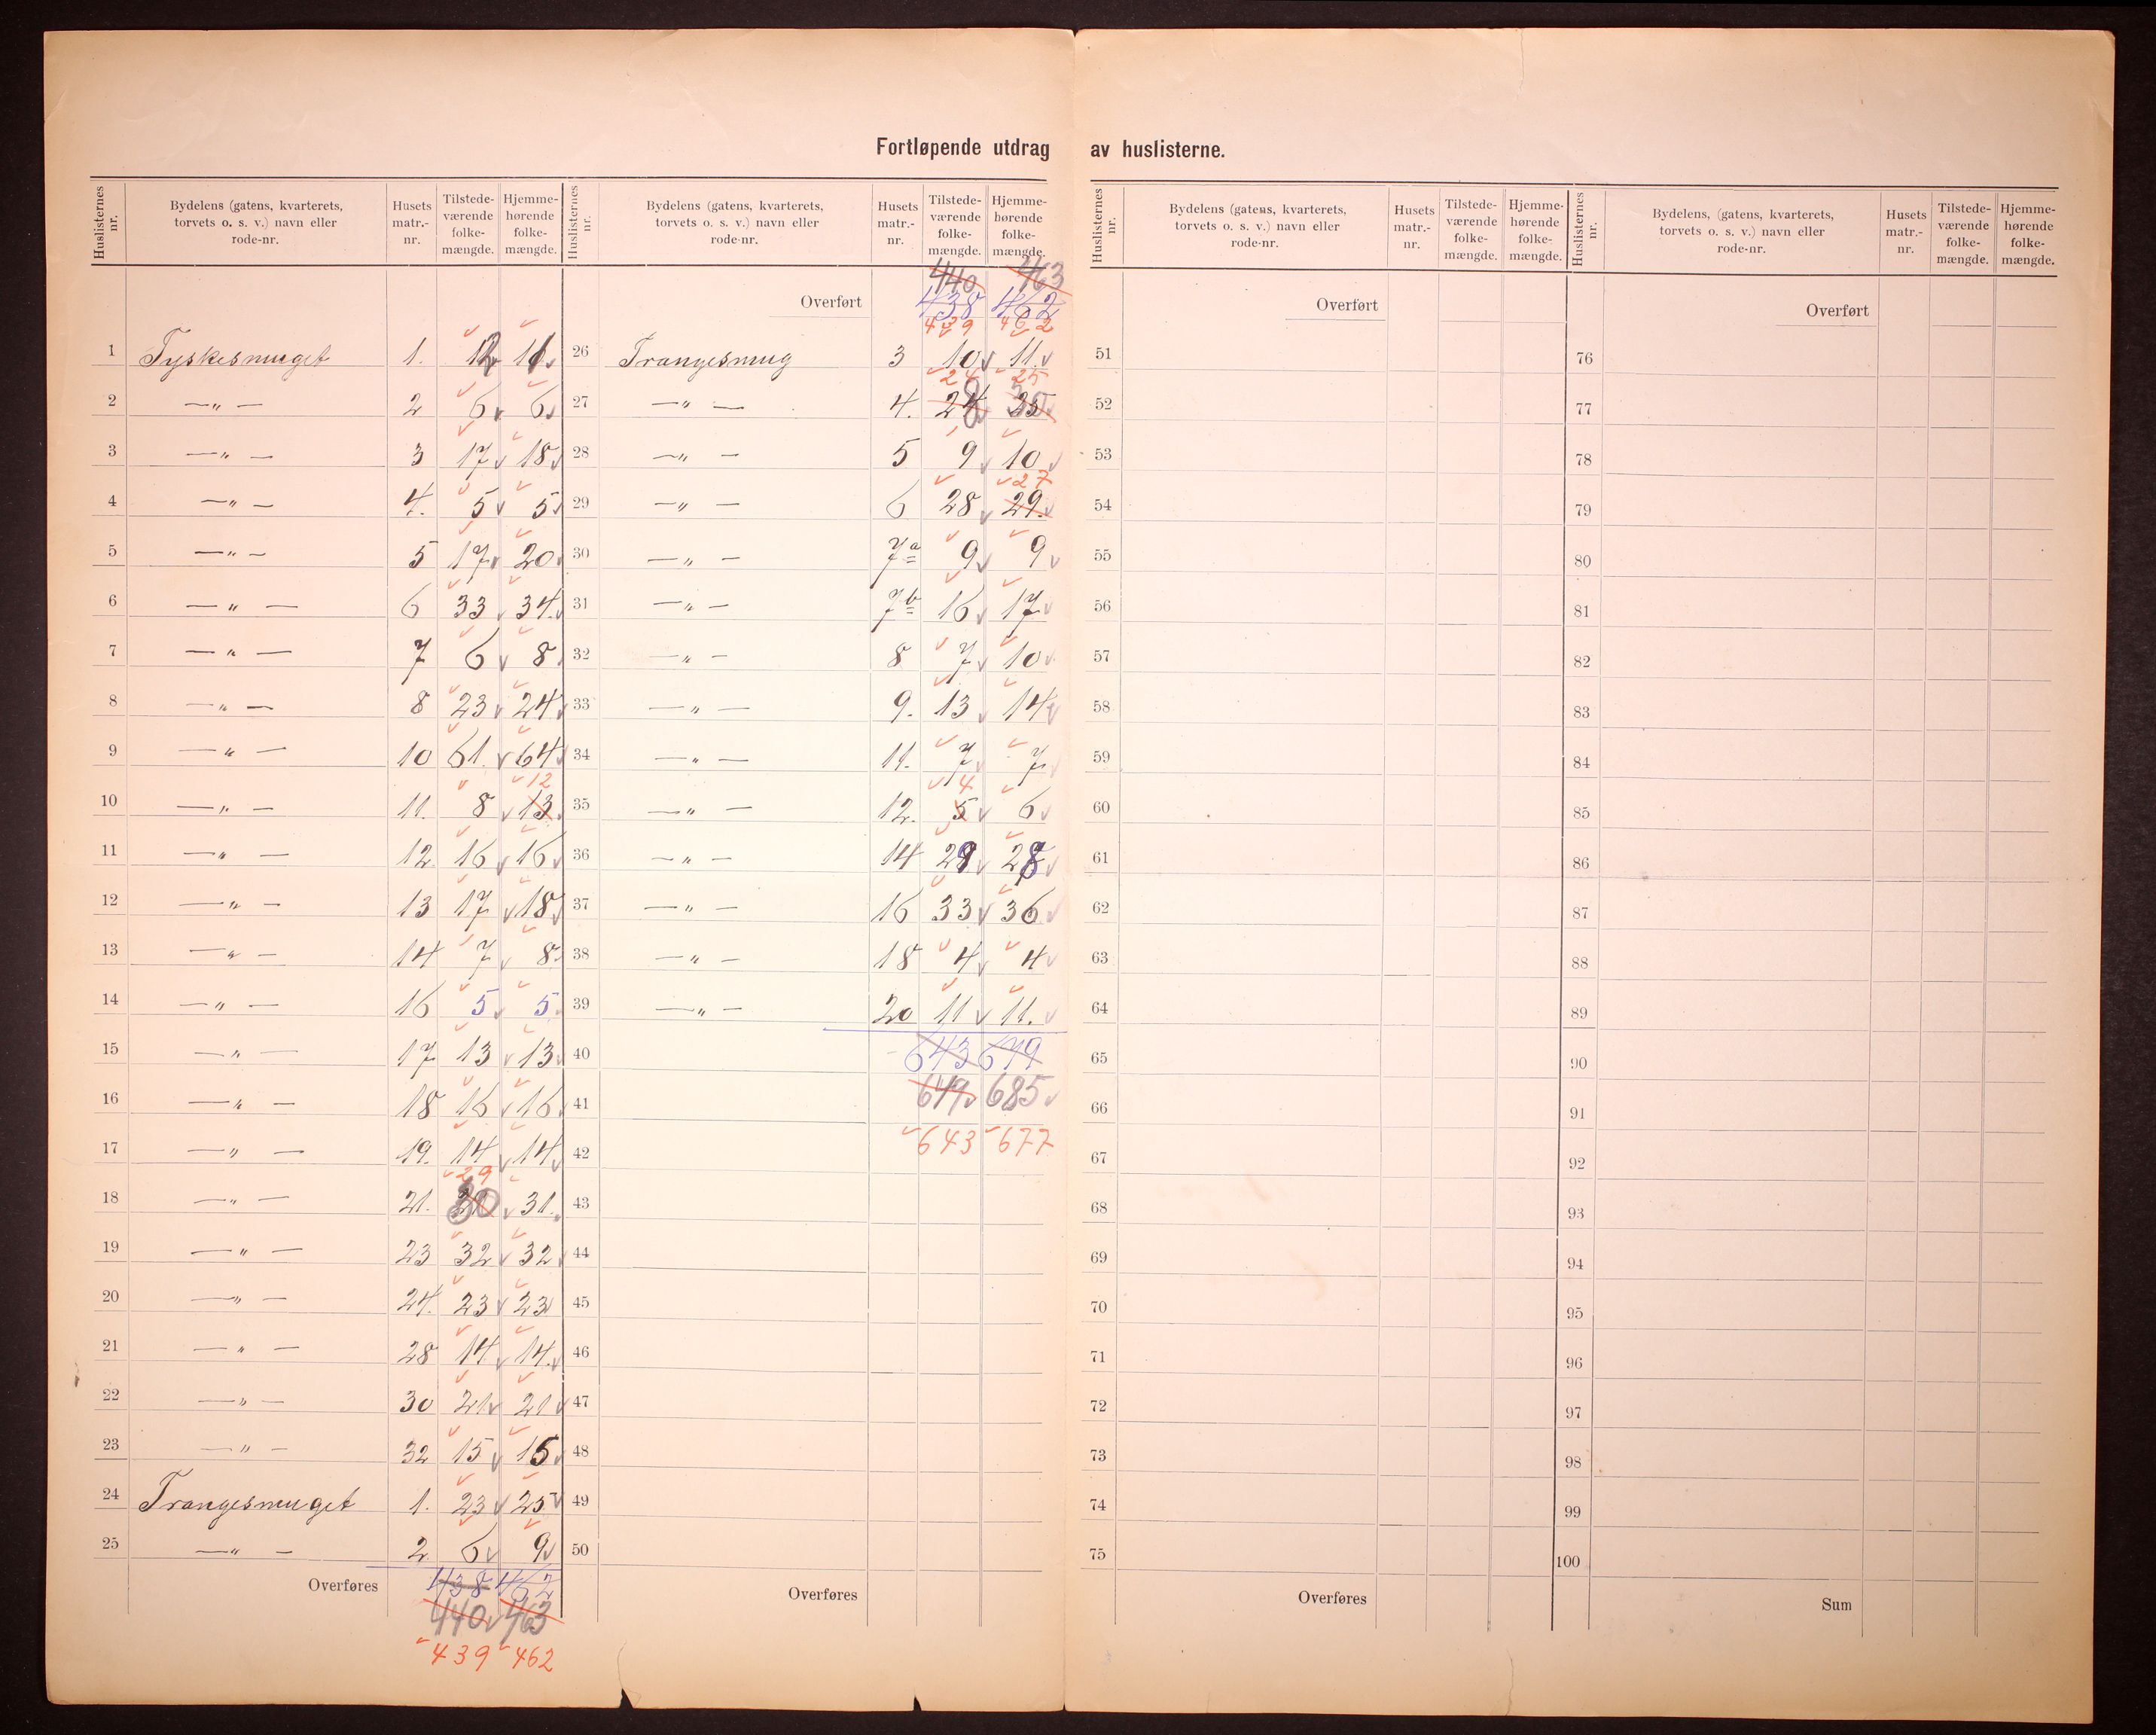 Fortløpende utdrag av huslisterne.
Huslisternes nr. Bydelens (gatens, kvarterets, torvets o. s. v.) navn eller rode-nr. Husets matr.-nr. Tilstedeværende folkemængde. Hjemmehørende folkemængde.
1 Tyskesmuget 1. 12 11
2 —„— 2 6 6
3 —„— 3 17 18
4 —„— 4. 5 5
5 —„— 5 17 20
6 —„— 6 33 34.
7 —„— 7 6 8
8 —„— 8 23 24
9 —„— 10 61. 64
10 —„— 11. 8 13 12
11 —„— 12 16 16
12 —„— 13 17 18
13 —„— 14 7 8
14 —„— 16 5 5
15 —„— 17 13 13
16 —„— 18 16 16
17 —„— 19. 14 14
18 —„— 21. 30 29 31.
19 —„— 23 32 32
20 —„— 24. 23 23
21 —„— 28 14 14
22 —„— 30 21 21
23 —„— 32 15 15
24 Trangesmuget 1. 23 25
25 —„— 2 6 9
Overføres 438 462
440 463
439 462
Huslisternes nr. Bydelens (gatens, kvarterets, torvets o. s. v.) navn eller rode-nr. Husets matr.-nr. Tilstedeværende folkemængde. Hjemmehørende folkemængde.
440 463
Overført 438 462
439 462
26 Trangesmug 3 10 11
27 —„— 4. 24 24 25 25
28 —„— 5 9 10
29 —„— 6 28 29 27
30 —„— 7a 9 9
31 —„— 7b 16 17
32 —„— 8 7 10
33 —„— 9. 13 14
34 —„— 11. 7 7
35 —„— 12. 5 4 6
36 —„— 14 29 28
37 —„— 16 33 36
38 —„— 18 4 4
39 —„— 20 11 11.
40 643 679
41 649 685
42 643 677
43
44
45
46
47
48
49
50
Overføres
Huslisternes nr. Bydelens (gatens, kvarterets, torvets o. s. v.) navn eller rode-nr. Husets matr.-nr. Tilstede-værende folke-mængde. Hjemme-hørende folke-mængde.
Overført
51
52
53
54
55
56
57
58
59
60
61
62
63
64
65
66
67
68
69
70
71
72
73
74
75
Overføres
Huslisternes nr. Bydelens, (gatens, kvarterets, torvets o. s. v.) navn eller rode-nr. Husets matr.-nr. Tilstede-værende folke-mængde. Hjemme-hørende folke-mængde.
Overført
76
77
78
79
80
81
82
83
84
85
86
87
88
89
90
91
92
93
94
95
96
97
98
99
100
Sum